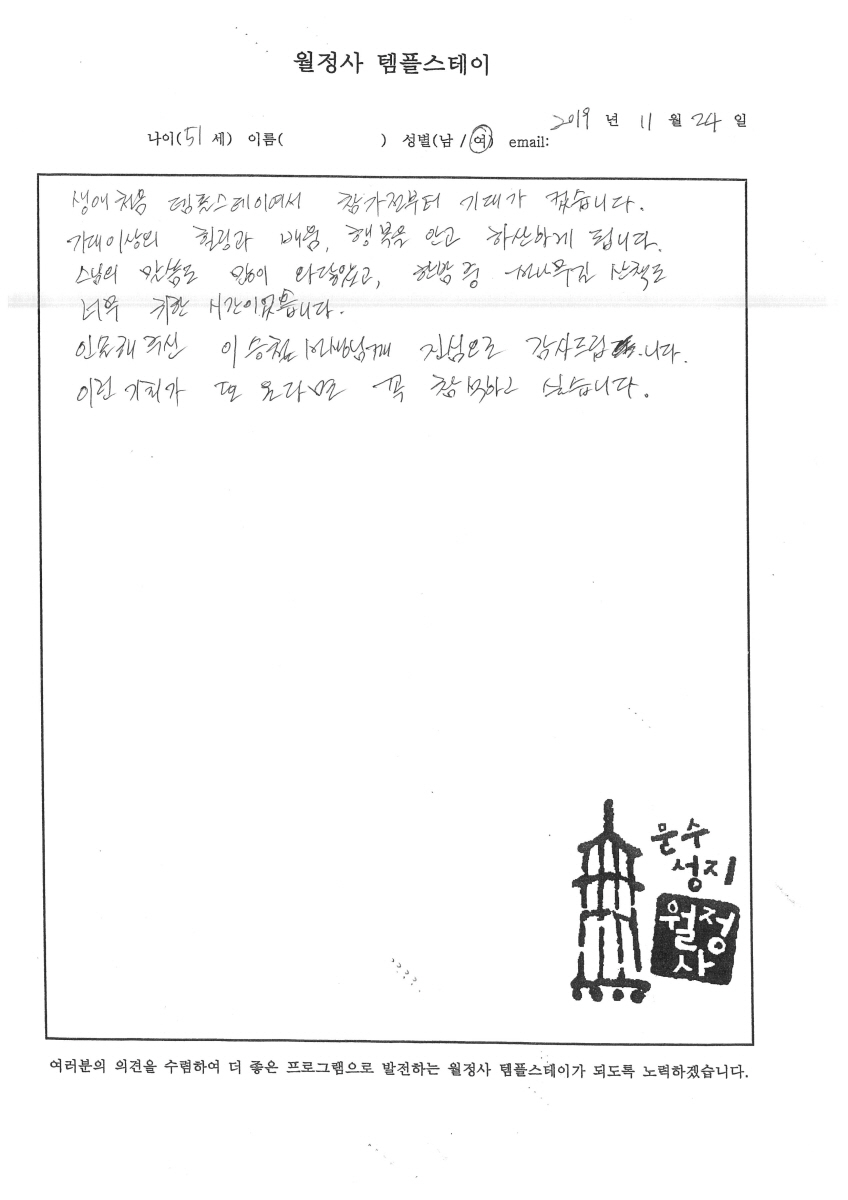 월정사 템플스테이
2019 년 11 월 24 일
나이(51 세) 이름( ) 성별(남 / 여) email:
생애 처음 템플스테이여서 참가전부터 기대가 컸습니다.
기대이상의 힐링과 배움, 행복을 안고 하산하게 됩니다.
스님의 말씀도 많이 와닿았고, 한밤중 전나무길 산책도
너무 귀한 시간이었습니다.
인솔해주신 이승철 선생님께 진심으로 감사드립니다.
이런 기회가 또 온다면 꼭 참석하고 싶습니다.
문수
성지
월정
사
여러분의 의견을 수렴하여 더 좋은 프로그램으로 발전하는 월정사 템플스테이가 되도록 노력하겠습니다.